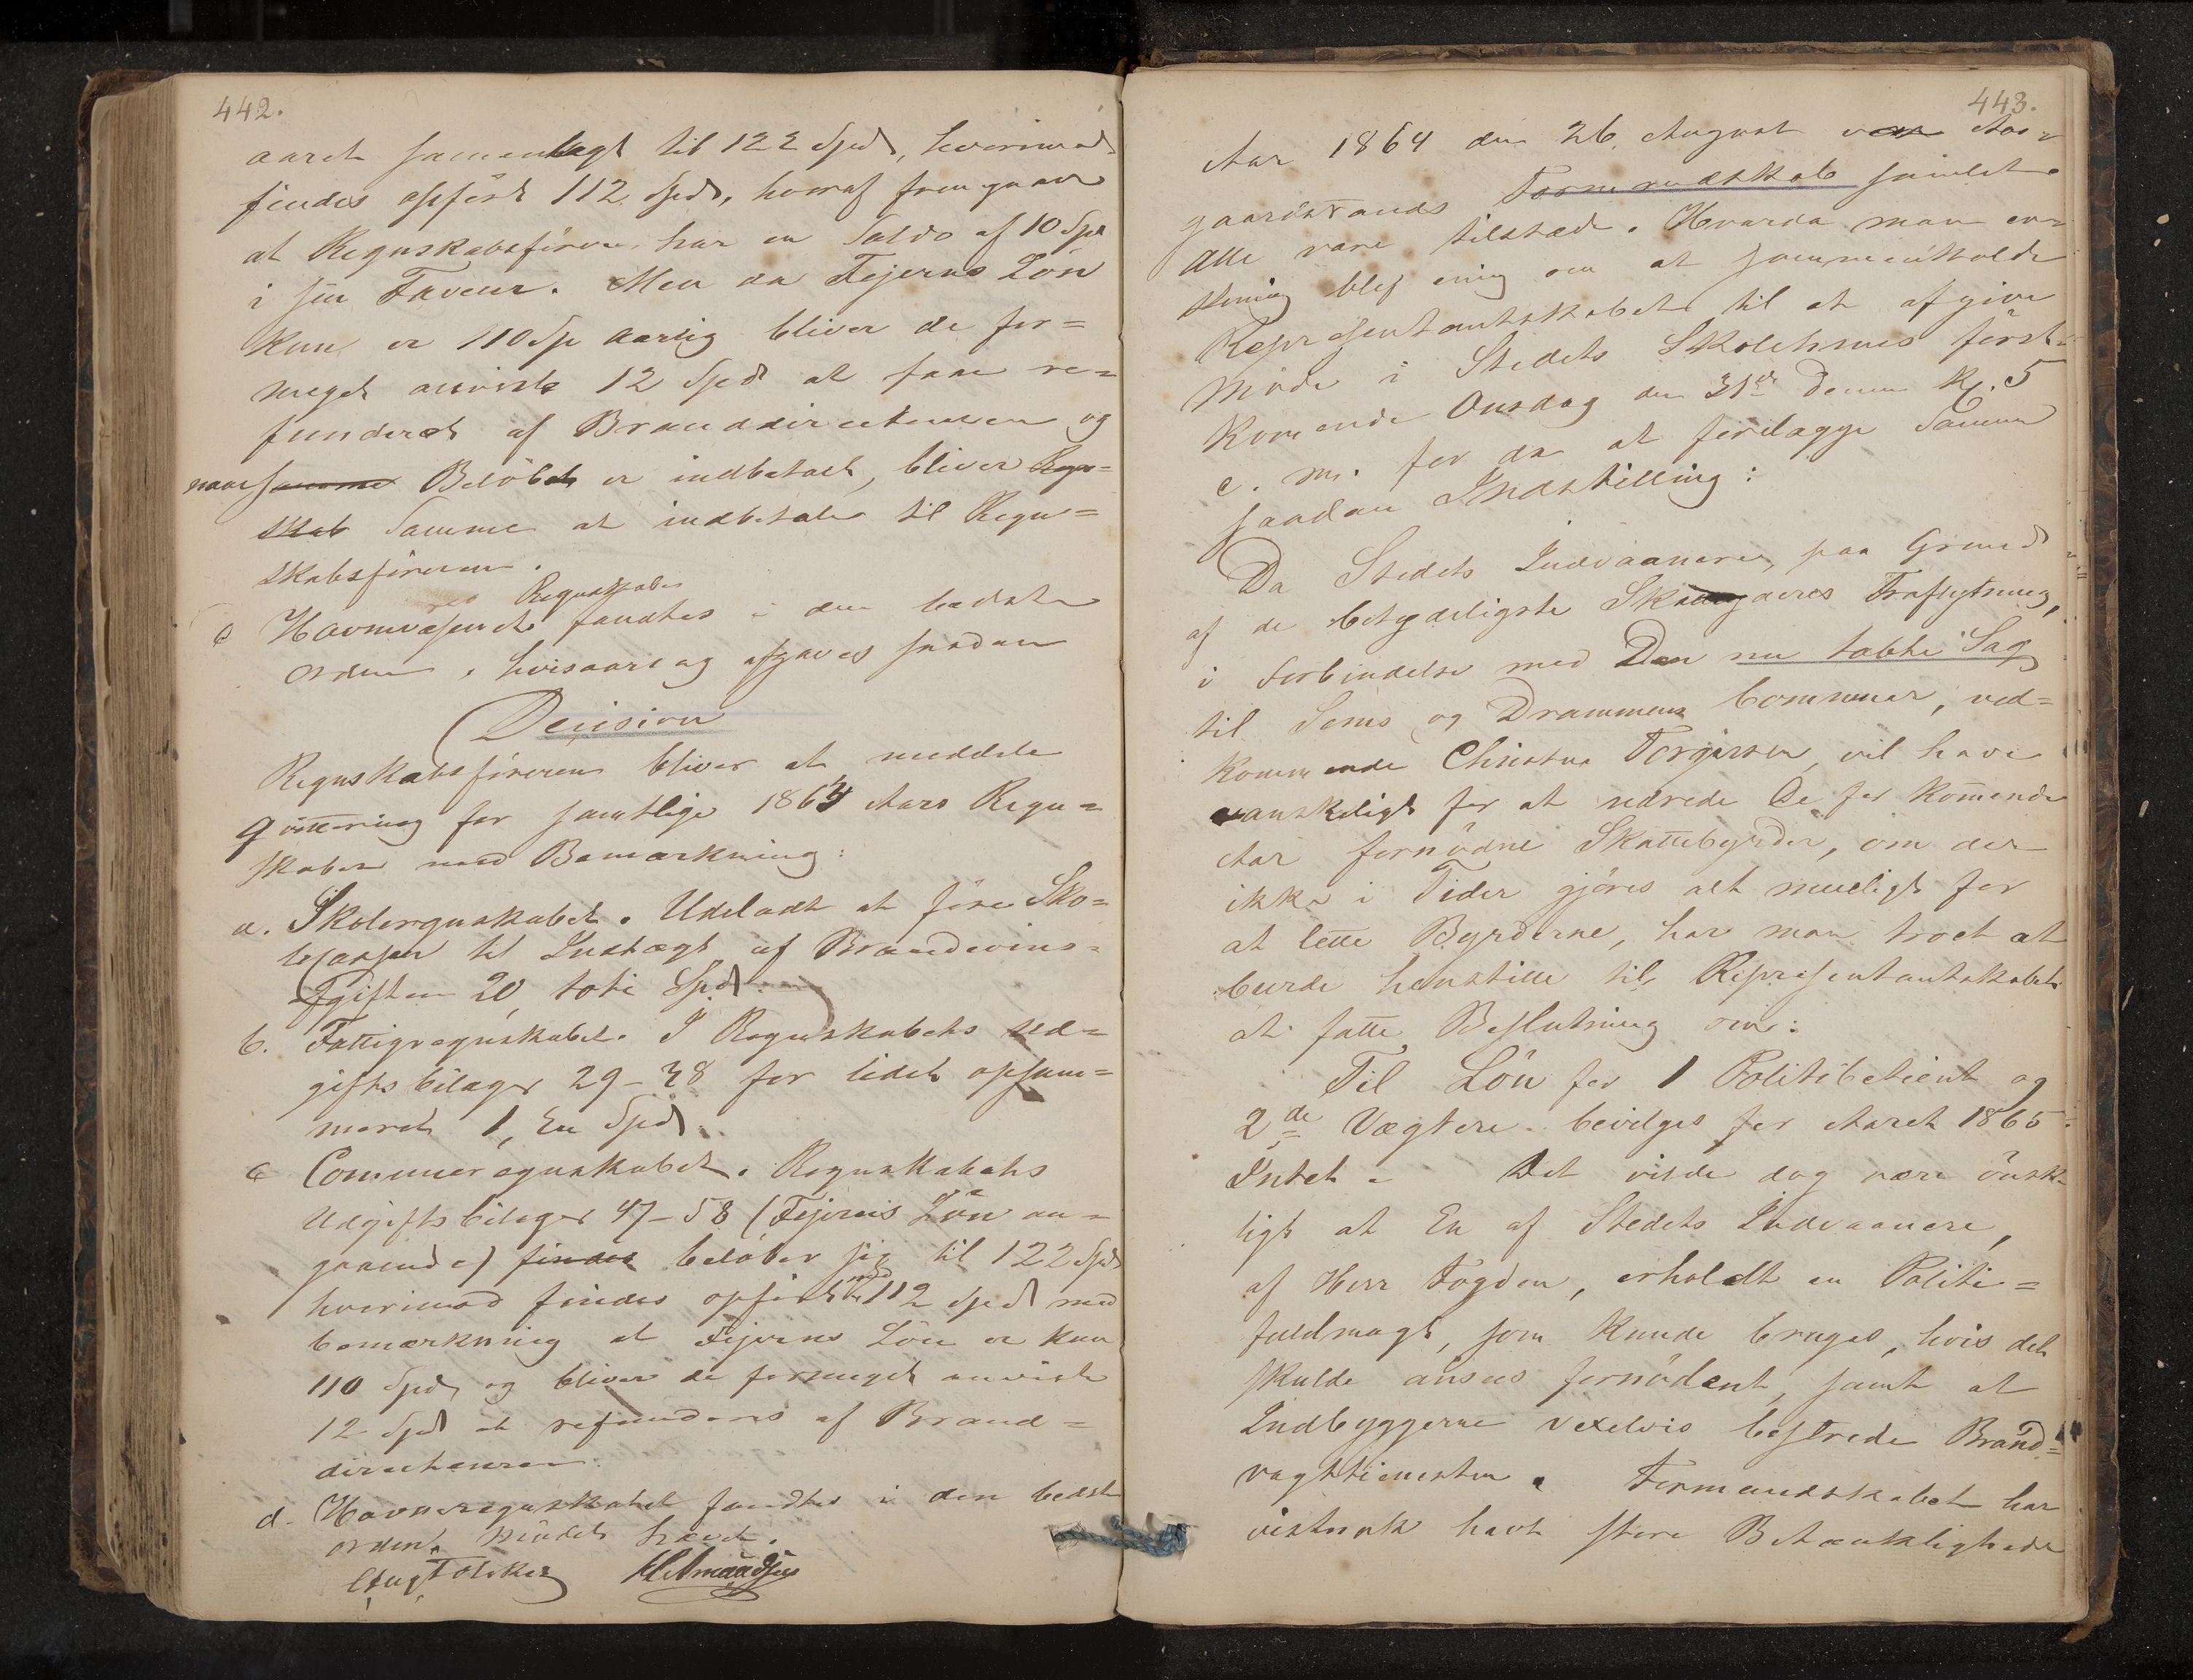 442.
aaret sammenlagt til 122 Spd, hvorimod
findes opført 112 Spd, hvoraf fremgaaer
at Regnskabsføreren har en Saldo af 10 Spd
i sin Faveur. Men da Fejerens Løn
kun er 110 Sp aarlig bliver de for=
meget anviste 12 Spd at faae re=
funderet af Branddirecteuren og
naar samme Beløbet er indbetalt, bliver Regn=
skab Samme at indbetale til Regn=
skabsføreren.
Regnskaber
c Havnevæsenets fandtes i den bedste
Orden, hvisaarsag afgaves saadan
Decision
Regnskabsføreren bliver at meddele
Qvittering for samtlige 1863 Aars Regn=
skaber med Bemærkning:
a. Skoleregnskabet. Udeladt at føre Sko=
lecassen til Indtægt af Brændevins=
afgiften 20, toti Spd.
b. Fattigregnskabet. I Regnskabets Ud=
gifts bilager 29-38 for lidet opsum=
meret 1, En Spd.
c Communeregnskabet. Regnskabets
Udgiftsbilager 47-58 (Fejerens Løn an=
gaaende) findes beløber sig til 122 Spd
hvorimod findes opført med 112 Spd med
bemærkning at Fejerens Løn er kun
110 Spd, og bliver de formeget anviste
12 Spd at refunderes af Brand=
directeuren.
d. Havneregnskabet fandtes i den bedste
orden. Mødet hævet.
Aug Tolskes H. Amundsen
443.
Aar 1864 den 26. August var Aas=
gaardstrands Formandskab samlet.
Alle vare tilstæde. Hvorda man en=
stemig blef enig om at sammenkalde
Repræsentantskabet til at afgive
Møde i Stedets Skolehuus først=
kommende Onsdag den 31te dennes Kl. 5
e. m. for da at forelægge Samme
saadan Indstilling:
Da Stedets Indvaanere, paa Grund
af de betydeligste Skatteyderes Fraflytning,
i Forbindelse med Den nu tabte Sag
til Sems og Drammens Commuer, ved=
kommende Christine Torgersen, vil have
vanskeligt for at udrede De for kommende
Aar fornødne Skattebyrder, om der
ikke i Tider gjøres alt mueligt for
at lette Byrderne, har man troet at
burde henstille til Repræsentantskabet
at fatte Beslutning om:
Til Løn for 1 Politibetient og
2de Vægtere bevilges for Aaret 1865
Intet. Det vilde dog være ønsk=
ligt at En af Stedets Indvaanere,
af Herr Fogden, erholdt en Politi=
fuldmagt, som kunde bruges, hvis det
skulde ansees fornødent, samt at
Indbyggerne vexelvis bestrede Brand=
vagttienesten. Formandskabet har
vistnok havt store Betænkligheder